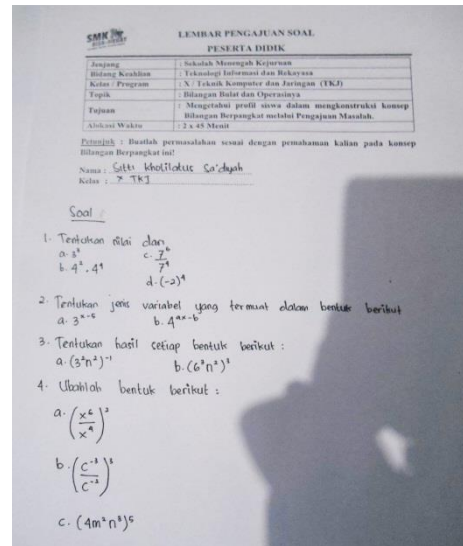 SMK
LEMBAR PENGAJUAN SOAL
PESERTA DIDIK
Jenjang : Sekolah Menengah Kejuruan
Bidang Keahlian : Teknologi Informasi dan Rekayasa
Kelas / Program : X / Teknik Komputer dan Jaringan (TKJ)
Topik : Bilangan Bulat dan Operasinya
Tujuan : Mengetahui profil siswa dalam mengkonstruksi konsep
Bilangan Berpangkat melalui Pengajuan Masalah.
Alokasi Waktu : 2 x 45 Menit
Petunjuk : Buatlah permasalahan sesuai dengan pemahaman kalian pada konsep
Bilangan Berpangkat ini!
Nama : Sitti Kholilatus Sa'diyah
Kelas : X TKJ
Soal :
1. Tentukan nilai dari
a. 3⁴ c. 7⁶/7⁴
b. 4² . 4⁴
d. (-2)⁴
2. Tentukan jenis variabel yang termuat dalam bentuk berikut
a. 3ˣ⁻⁶ b. 4ᵃˣ⁻ᵇ
3. Tentukan hasil setiap bentuk berikut :
a. (3²n²)⁻¹ b. (6³n²)³
4. Ubahlah bentuk berikut :
a. (x⁶/x⁴)³
b. (c⁻³/c⁻²)³
c. (4m²n³)⁵